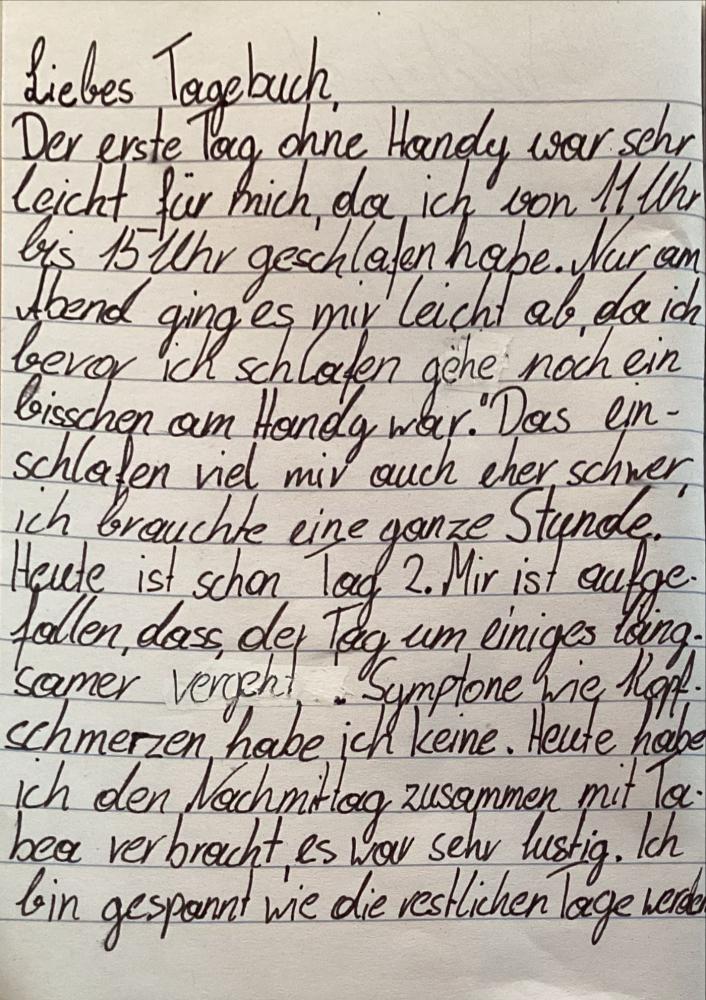 Liebes Tagebuch,
Der erste Tag ohne Handy war sehr
leicht für mich, da ich von 11 Uhr
bis 15 Uhr geschlafen habe. Nur am
Abend ging es mir leicht ab, da ich
bevor ich schlafen gehe noch ein
bisschen am Handy war. Das ein-
schlafen viel mir auch eher schwer,
ich brauchte eine ganze Stunde.
Heute ist schon Tag 2. Mir ist aufge-
fallen, dass der Tag um einiges lang-
samer vergeht. Symptone wie Kopf-
schmerzen habe ich keine. Heute habe
ich den Nachmittag zusammen mit Ta-
bea verbracht, es war sehr lustig. Ich
bin gespannt wie die restlichen Tage werden